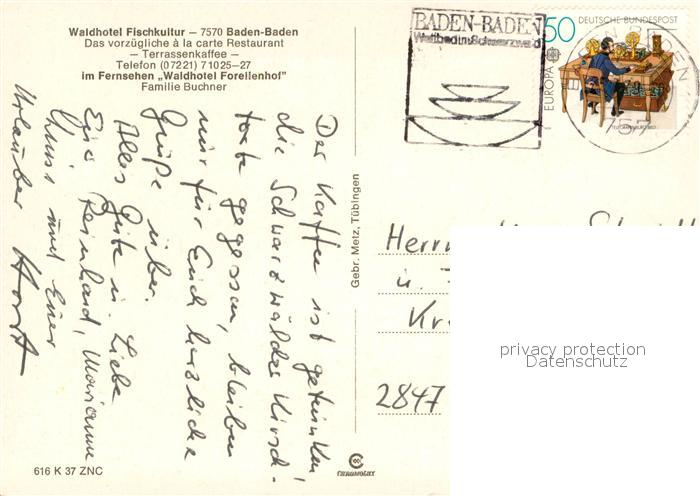 Waldhotel Fischkultur – 7570 Baden-Baden
Das vorzügliche à la carte Restaurant
– Terrassenkaffee –
Telefon (07221) 71025-27
im Fernsehen „Waldhotel Forellenhof"
Familie Buchner
BADEN-BADEN
Weltbad im Schwarzwald
50 DEUTSCHE BUNDESPOST
EUROPA
757
Der Kaffee ist getrunken,
die Schwarzwälder Kirsch-
torte gegessen, bleiben
mir für Euch herzliche
Grüße über.
Alles Gute in Liebe
Eure Reinhard, Marianne
und Euer
Urlauber Horst
Gebr. Metz, Tübingen
Herrn
u.
Kr
2847
privacy protection
Datenschutz
616 K 37 ZNC